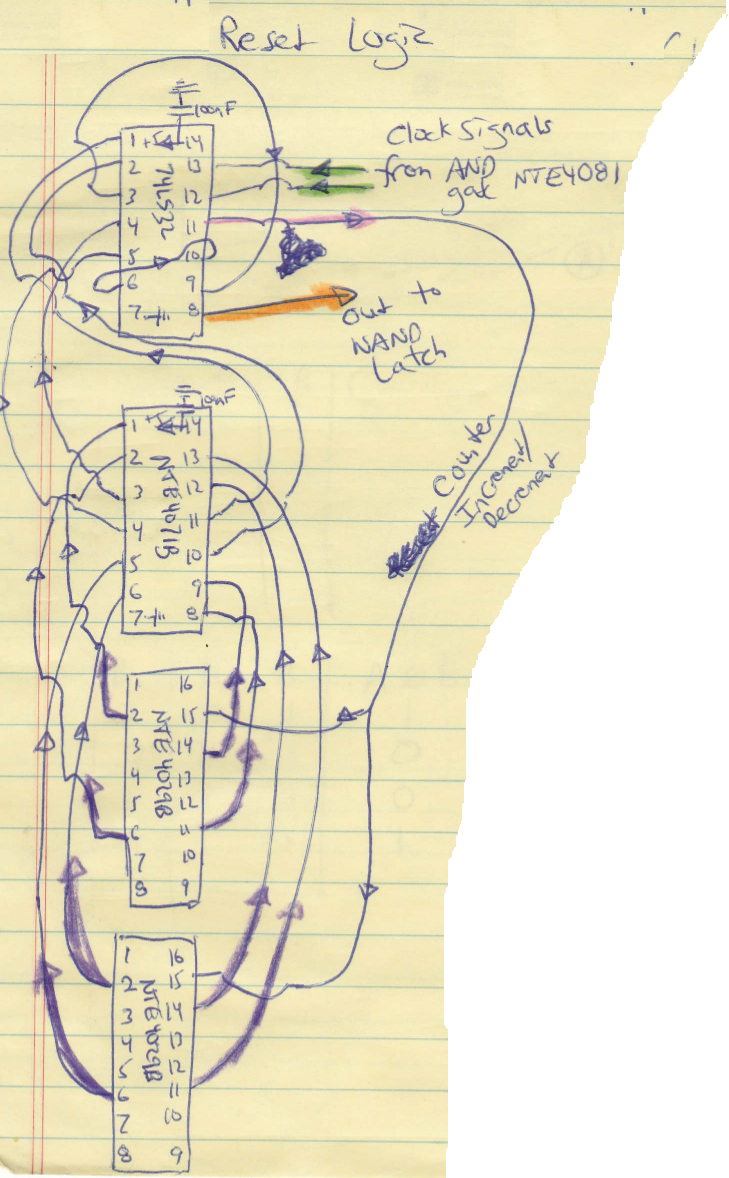 Reset Logic
100nF
1 +5 14
2 13
3 12
4 11
5 10
6 9
7 8
74LS32
Clock signals
from AND
gate NTE4081
out to
NAND
Latch
100nF
1 +5 14
2 13
3 12
4 11
5 10
6 9
7 8
NTE4071B
Counter
Increment/
Decrement
1 16
2 15
3 14
4 13
5 12
6 11
7 10
8 9
NTE4029B
1 16
2 15
3 14
4 13
5 12
6 11
7 10
8 9
NTE4029B